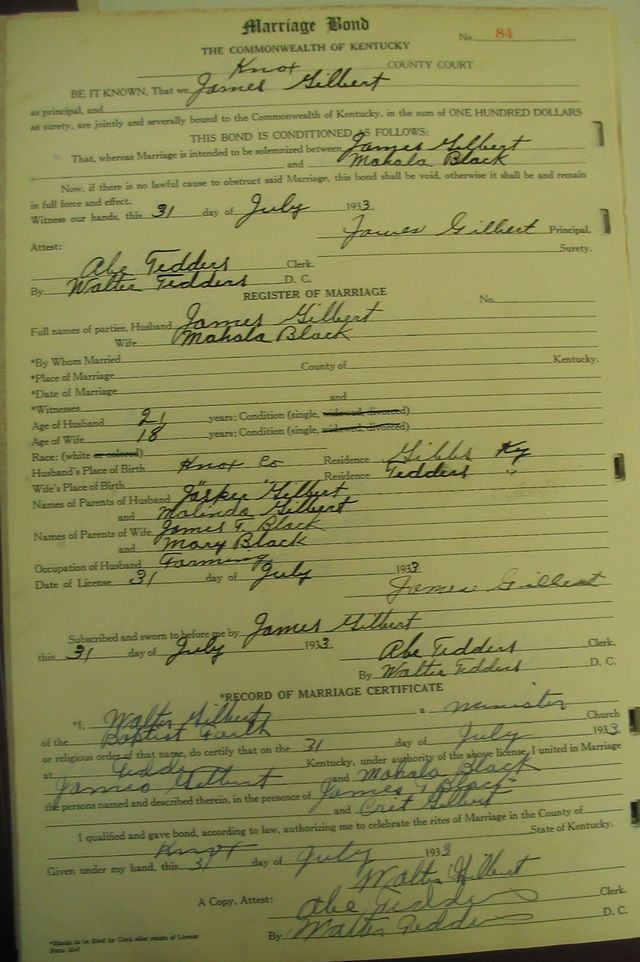 Marriage Bond
No. 84
THE COMMONWEALTH OF KENTUCKY
Knox COUNTY COURT
BE IT KNOWN, That we James Gilbert
as principal, and
as surety, are jointly and severally bound to the Commonwealth of Kentucky, in the sum of ONE HUNDRED DOLLARS
THIS BOND IS CONDITIONED AS FOLLOWS:
That, whereas Marriage is intended to be solemnized between James Gilbert
and Mahala Black
Now, if there is no lawful cause to obstruct said Marriage, this bond shall be void, otherwise it shall be and remain
in full force and effect.
Witness our hands, this 31 day of July 1933
James Gilbert Principal.
Attest: Surety.
Abe Tedders Clerk.
By Walter Tedders D. C.
REGISTER OF MARRIAGE
No.
Full names of parties, Husband James Gilbert
Wife Mahala Black
*By Whom Married
*Place of Marriage County of Kentucky.
*Date of Marriage
*Witnesses and
Age of Husband 21 years; Condition (single, widowed, divorced)
Age of Wife 18 years; Condition (single, widowed, divorced)
Race: (white or colored)
Husband's Place of Birth Knox Co Residence Gibbs Ky
Wife's Place of Birth " " Residence Tedders "
Names of Parents of Husband Gilbert
and Malinda Gilbert
Names of Parents of Wife James T. Black
and Mary Black
Occupation of Husband Farming
Date of License 31 day of July 1933
James Gilbert
Subscribed and sworn to before me by James Gilbert
this 31 day of July 1933 Abe Tedders Clerk.
By Walter Tedders D. C.
*RECORD OF MARRIAGE CERTIFICATE
*I, Walter Gilbert a minister
of the Baptist Faith Church
or religious order of that name, do certify that on the 31 day of July 1933
at Kentucky, under authority of the above license, I united in Marriage
James Gilbert and Mahala Black
the persons named and described therein, in the presence of James T Black
and Crit Gilbert
I qualified and gave bond, according to law, authorizing me to celebrate the rites of Marriage in the County of
Knox State of Kentucky.
Given under my hand, this 31 day of July 1933
Walter Gilbert
A Copy, Attest: Abe Tedders Clerk.
By Walter Tedders D. C.
*Blanks to be filled by Clerk after return of License